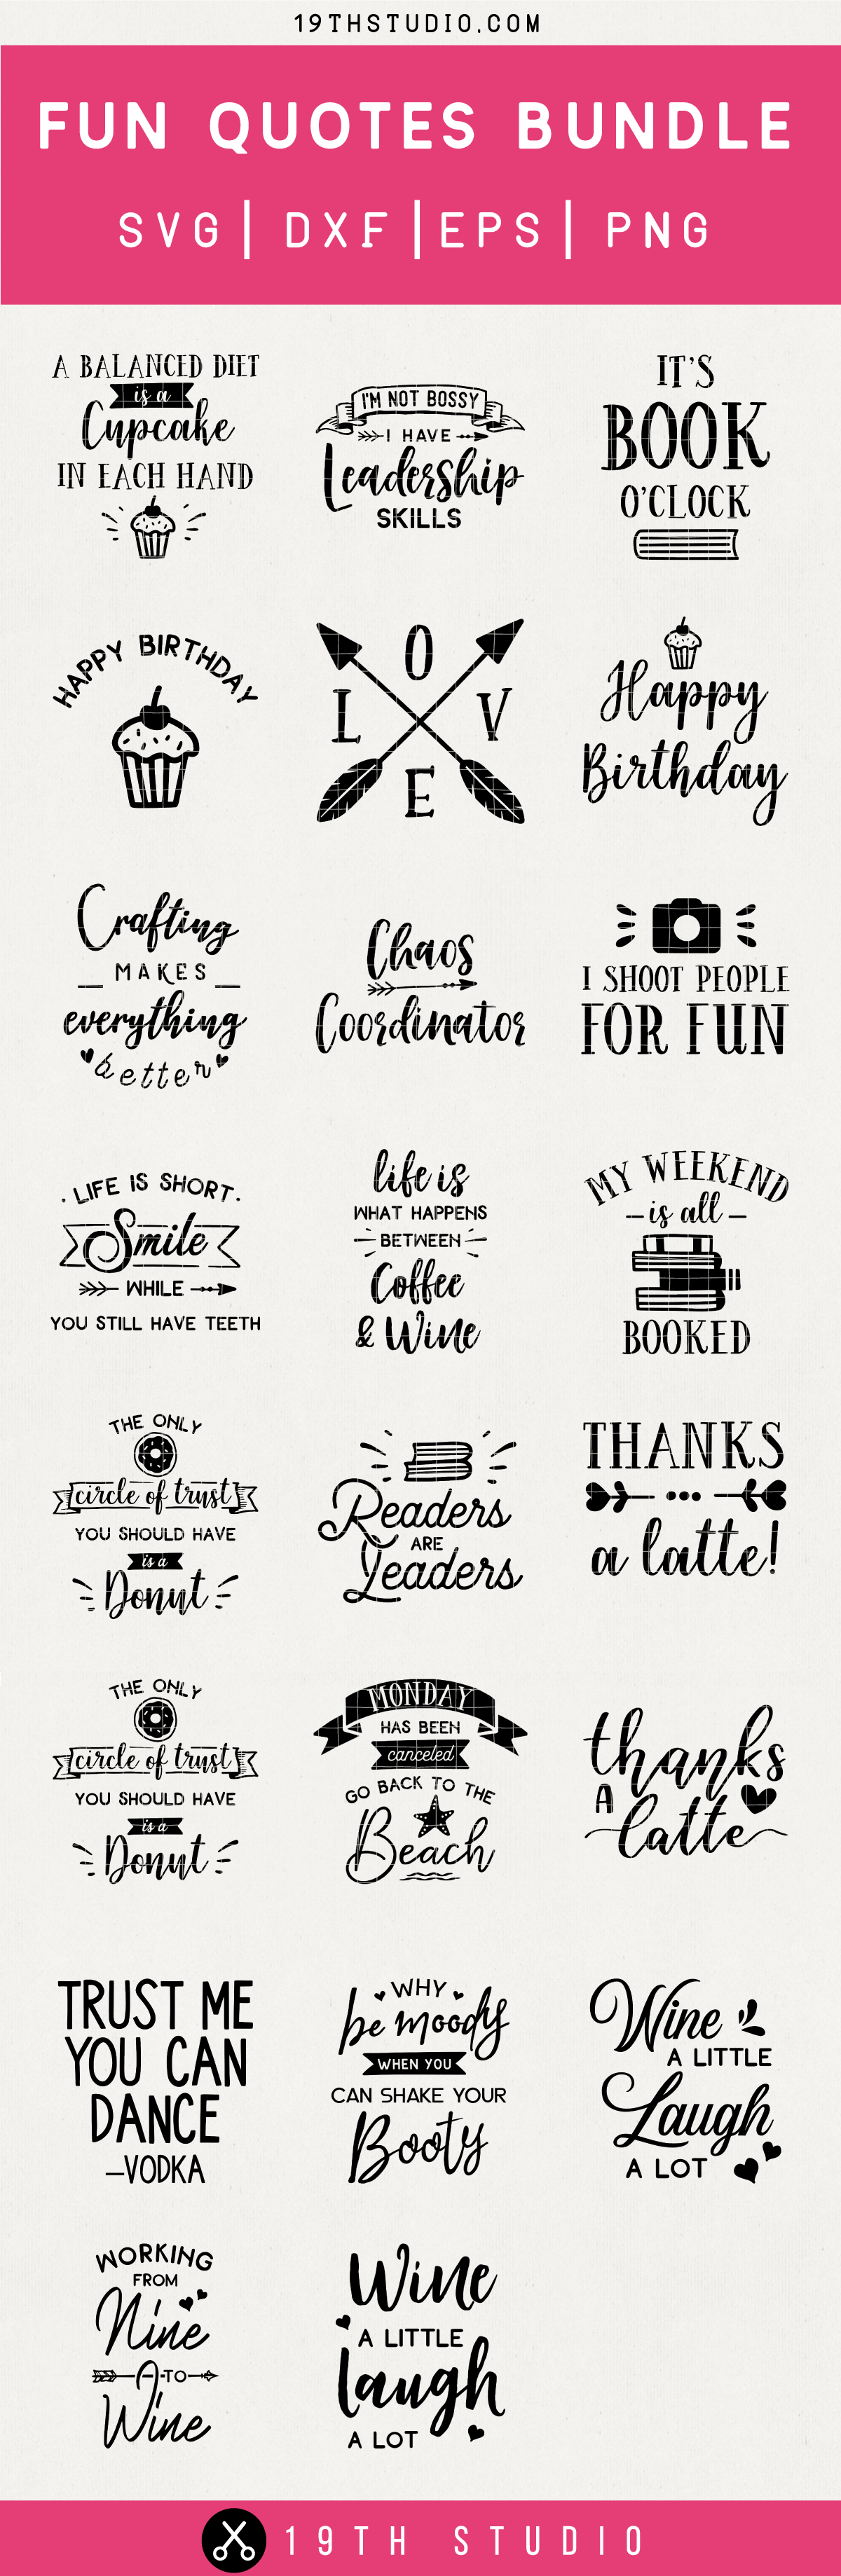 19THSTUDIO.COM
FUN QUOTES BUNDLE
SVG| DXF |EPS| PNG
A BALANCED DIET
is a
Cupcake
IN EACH HAND
I'M NOT BOSSY
I HAVE
Leadership
SKILLS
IT'S
BOOK
O'CLOCK
HAPPY BIRTHDAY
O
L V
E
Happy
Birthday
Crafting
MAKES
everything
better
Chaos
Coordinator
I SHOOT PEOPLE
FOR FUN
. LIFE IS SHORT.
Smile
WHILE
YOU STILL HAVE TEETH
life is
WHAT HAPPENS
BETWEEN
Coffee
& Wine
MY WEEKEND
– is all –
BOOKED
THE ONLY
circle of trust
YOU SHOULD HAVE
is a
Donut
Readers
ARE
Leaders
THANKS
a latte!
THE ONLY
circle of trust
YOU SHOULD HAVE
is a
Donut
MONDAY
HAS BEEN
canceled
GO BACK TO THE
Beach
thanks
A
latte
TRUST ME
YOU CAN
DANCE
–VODKA
WHY
be moody
WHEN YOU
CAN SHAKE YOUR
Booty
Wine
A LITTLE
Laugh
A LOT
WORKING
FROM
Nine
TO
Wine
Wine
A LITTLE
laugh
A LOT
19TH STUDIO